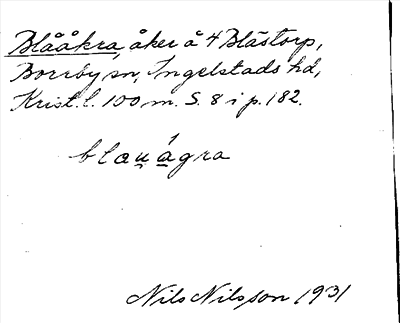 Blååkra, åker å 4 Blästorp,
Borrby sn, Ingelstads hd,
Krist. l. 100 m. S. 8 i p. 182.
blau̯ágra
Nils Nilsson 1931